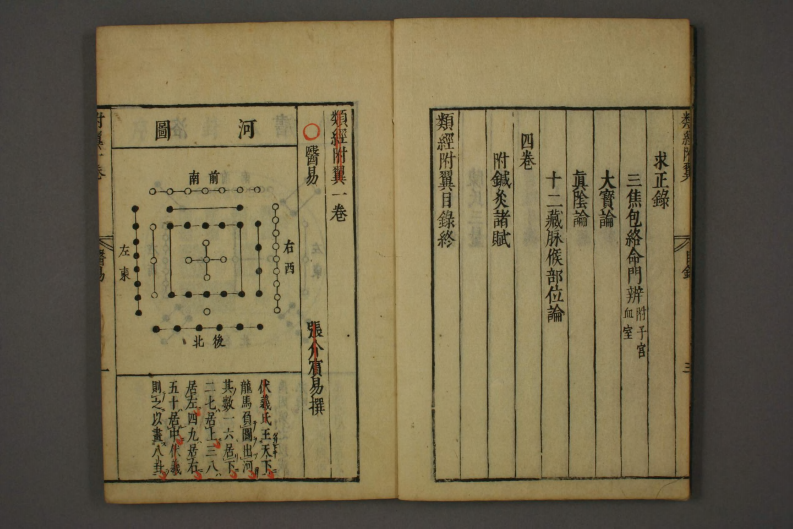 類經附翼
求正錄
三焦包絡命門辨 附子宮血室
大寶論
眞陰論
十二藏脉候部位論
四卷
附鍼灸諸賦
類經附翼目錄終
目錄
三
類經附翼一卷
醫易
張介賓易撰
河圖
前南
右西
左東
後北
伏羲氏王天下
龍馬負圖出河
其數一六居下
二七居上三八
居左四九居右
五十居中伏羲
則之以畫八卦
附翼一卷
醫易
一